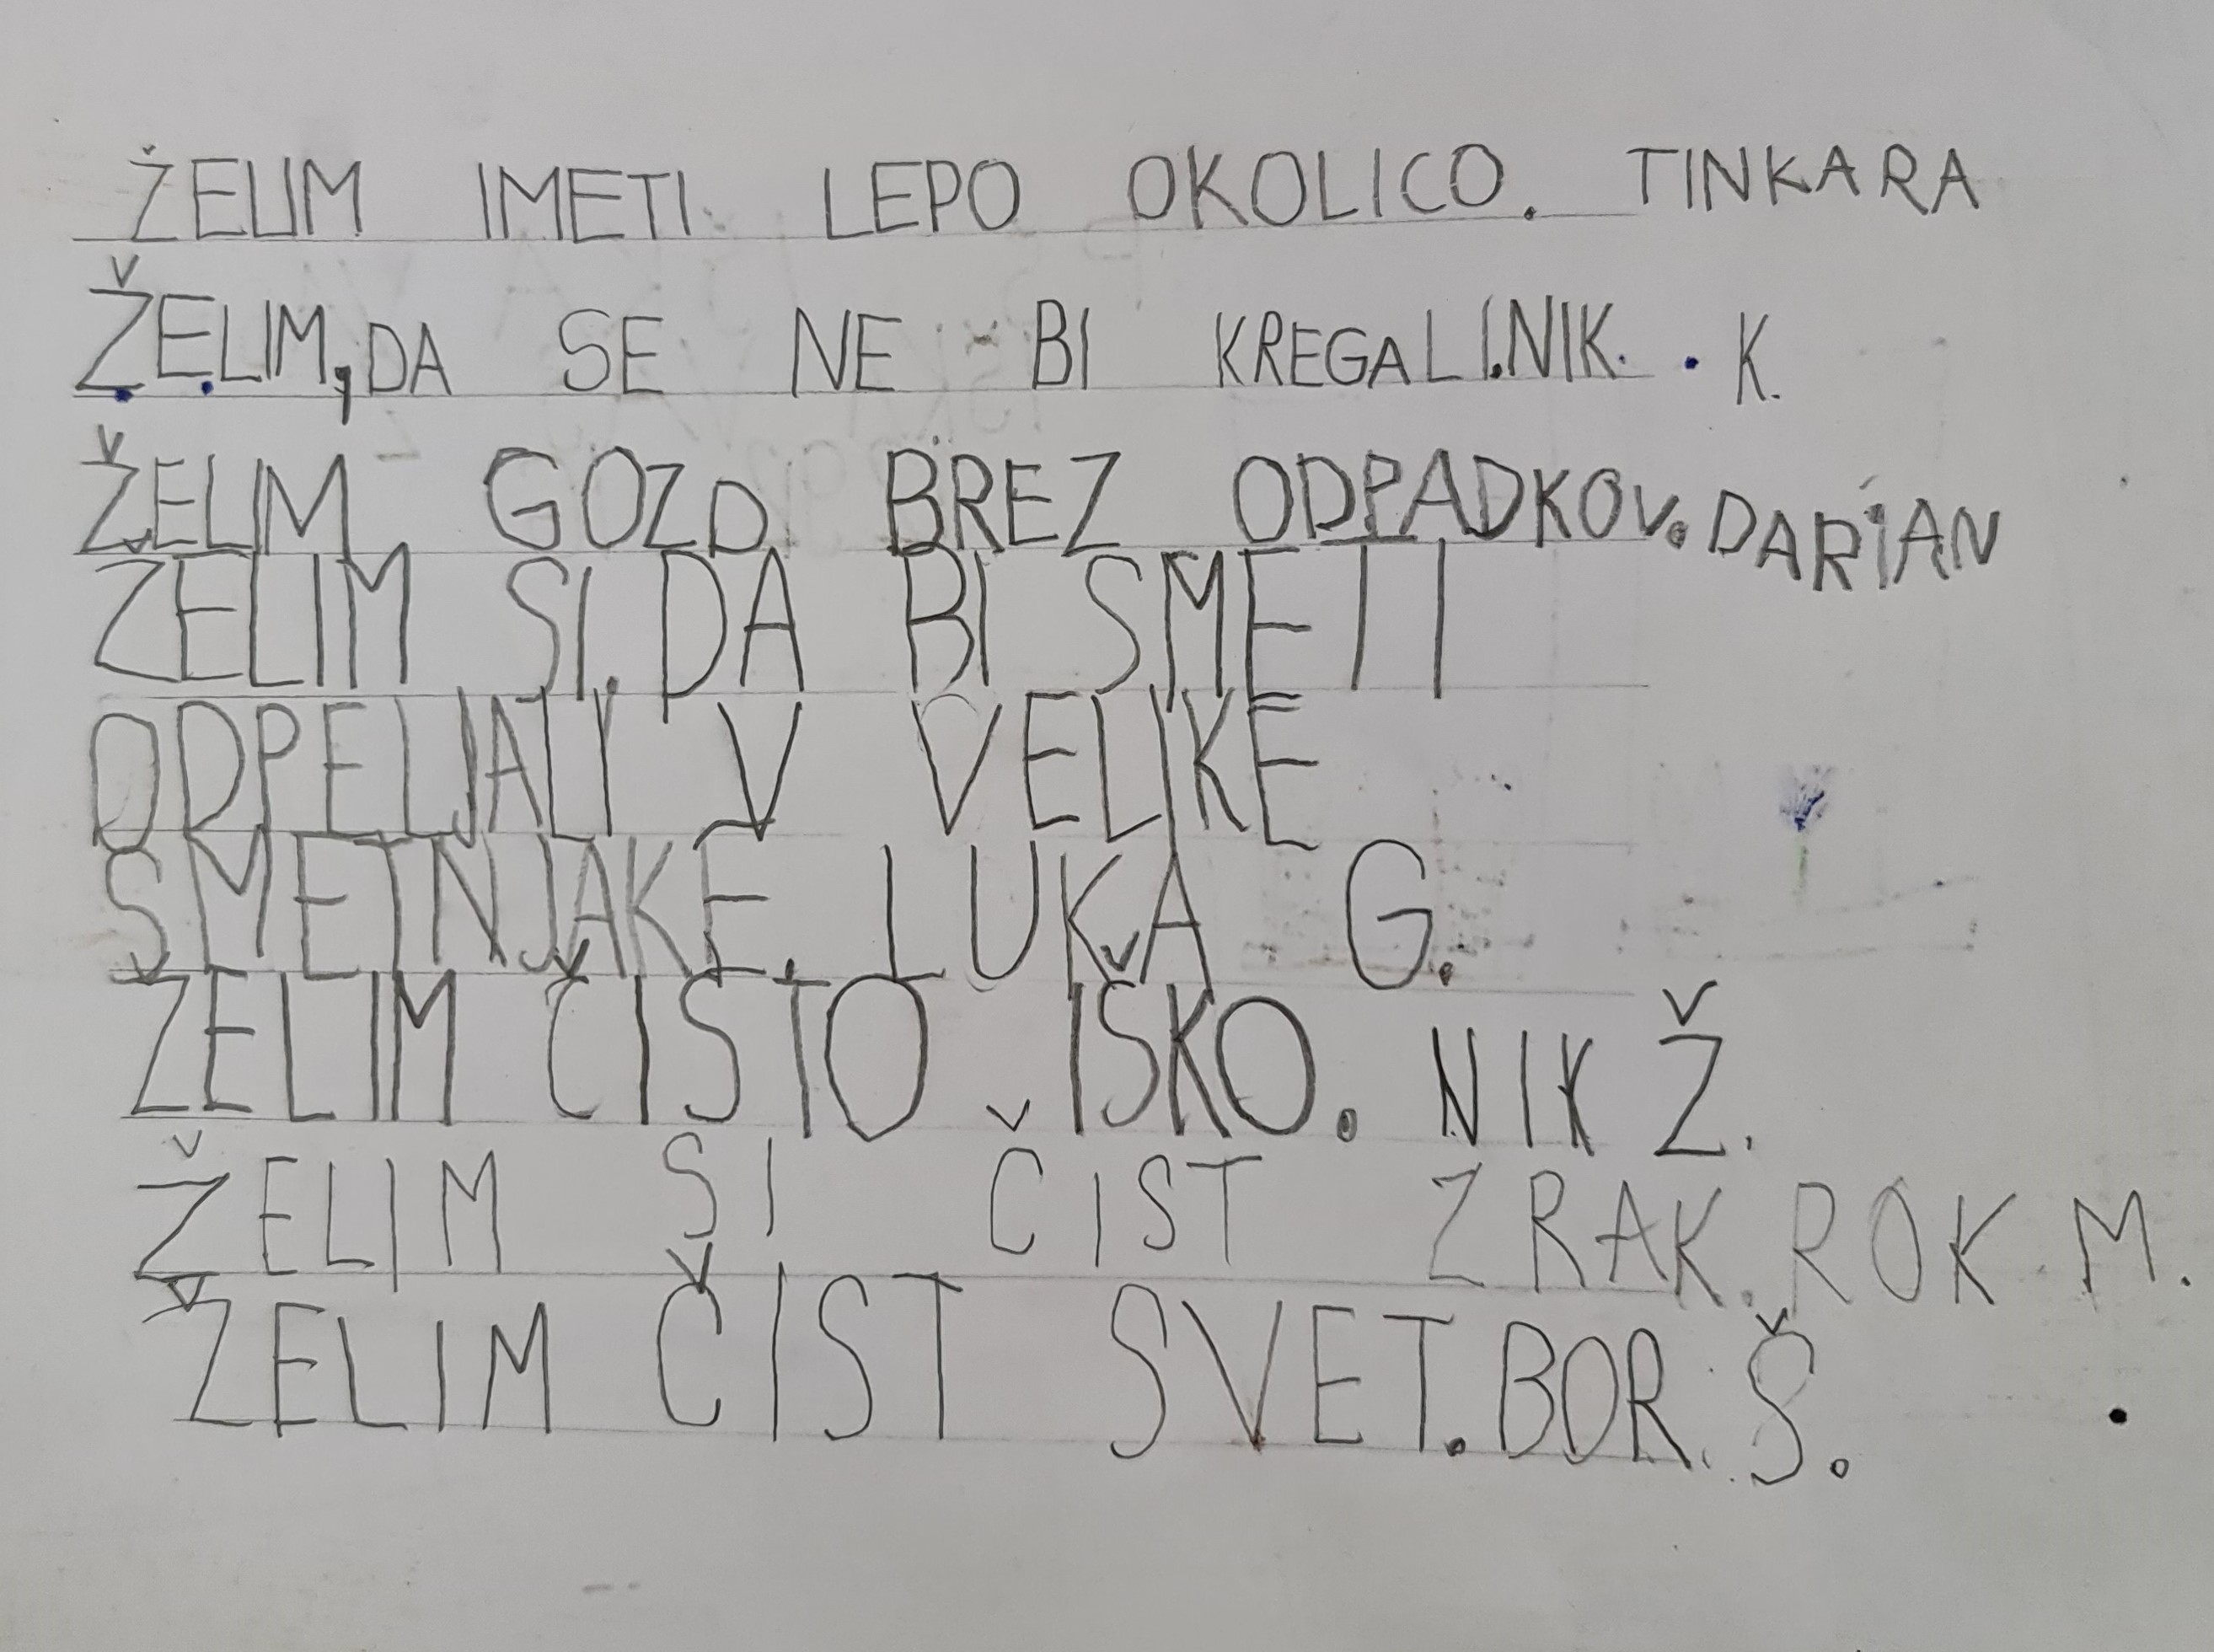 ŽELIM IMETI LEPO OKOLICO. TINKARA
ŽELIM, DA SE NE BI KREGALI. NIK K.
ŽELIM GOZD BREZ ODPADKOV. DARIAN
ŽELIM SI, DA BI SMETI
ODPELJALI V VELIKE
SMETNJAKE. LUKA G.
ŽELIM ČISTO IŠKO. NIK Ž.
ŽELIM SI ČIST ZRAK. ROK M.
ŽELIM ČIST SVET. BOR Š.